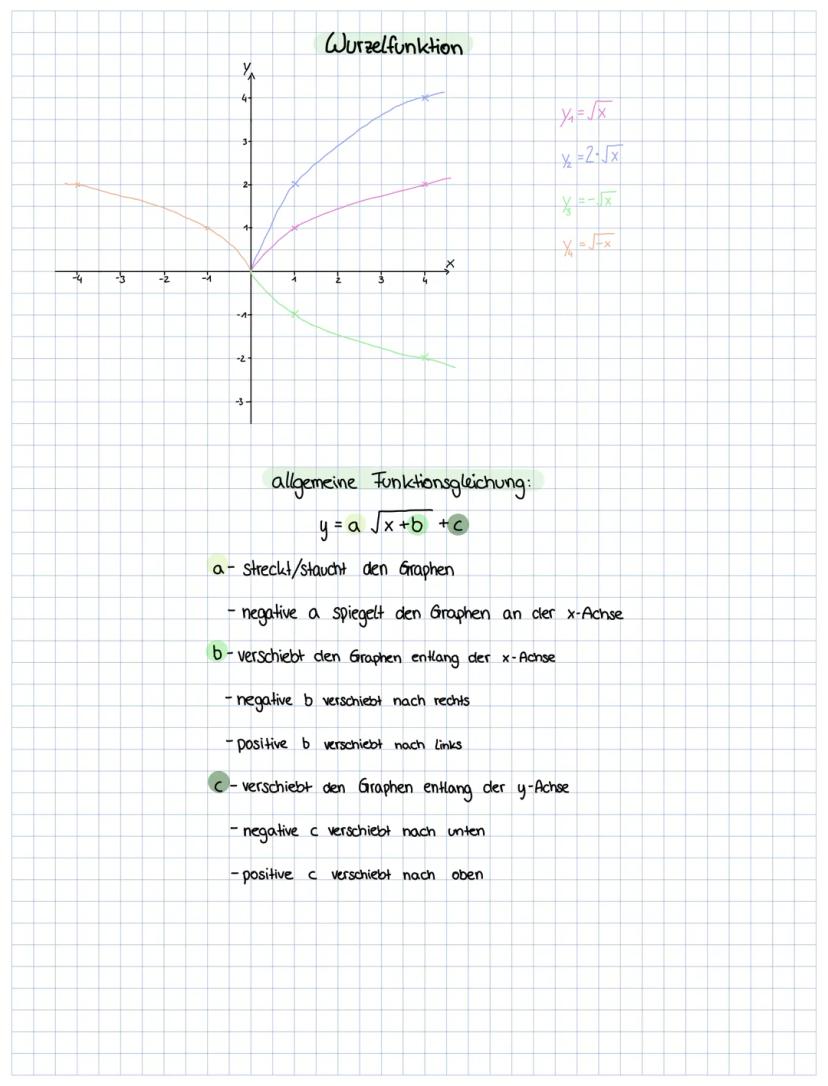 Wurzelfunktion
y
4
3
2
1
-4 -3 -2 -1 1 2 3 4 x
-1
-2
-3
y₁ = √x
y₂ = 2·√x
y₃ = -√x
y₄ = √-x
allgemeine Funktionsgleichung:
y = a √x + b + c
a - streckt/staucht den Graphen
- negative a spiegelt den Graphen an der x-Achse
b - verschiebt den Graphen entlang der x-Achse
- negative b verschiebt nach rechts
- positive b verschiebt nach links
c - verschiebt den Graphen entlang der y-Achse
- negative c verschiebt nach unten
- positive c verschiebt nach oben